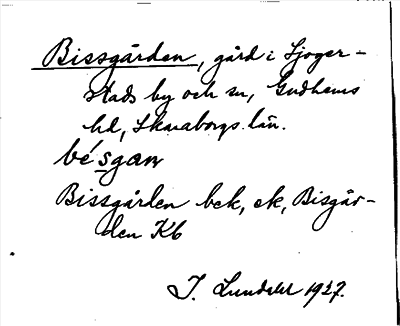 Bissgården, gård i Sjoger-
stads by och sn, Gudhems
hd, Skaraborgs län.
bésgan
Bissgården bek, ek, Bisgår-
den Kb
I. Lundahl 1927.